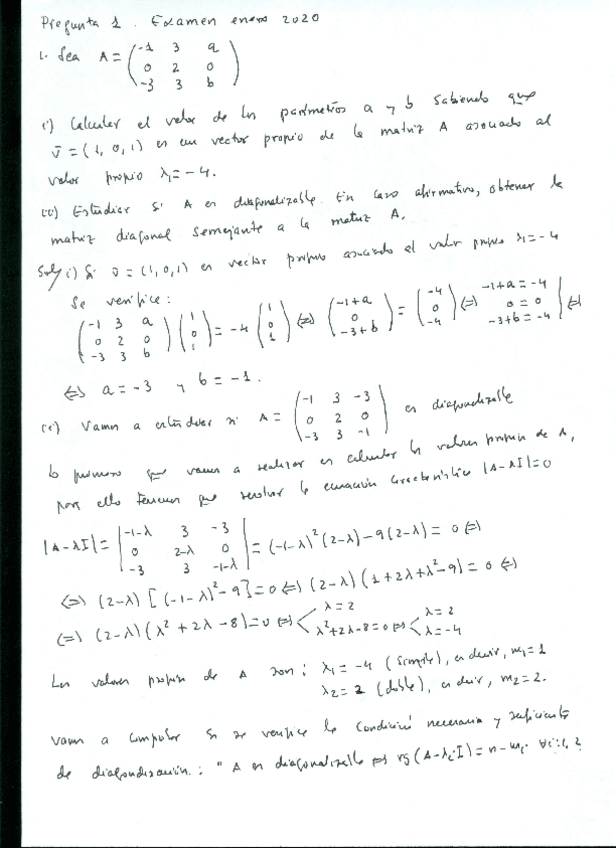 Pregunta 1. Examen enero 2020
1. Sea A = (-1 3 a; 0 2 0; -3 3 b)
i) Calcular el valor de los parámetros a y b sabiendo que
v̄ = (1, 0, 1) es un vector propio de la matriz A asociado al
valor propio λ₁ = -4.
ii) Estudiar si A es diagonalizable. En caso afirmativo, obtener la
matriz diagonal semejante a la matriz A.
Sol/ i) Si v̄ = (1,0,1) es vector propio asociado al valor propio λ₁ = -4
Se verifica:
(-1 3 a; 0 2 0; -3 3 b) (1; 0; 1) = -4 (1; 0; 1) ⇔ (-1+a; 0; -3+b) = (-4; 0; -4) ⇔ -1+a = -4; 0 = 0; -3+b = -4 | ⇔
⇔ a = -3 y b = -1.
ii) Vamos a estudiar si A = (-1 3 -3; 0 2 0; -3 3 -1) es diagonalizable
lo primero que vamos a realizar es calcular los valores propios de A,
para ello tenemos que resolver la ecuación característica |A-λI| = 0
|A-λI| = |-1-λ 3 -3; 0 2-λ 0; -3 3 -1-λ| = (-1-λ)²(2-λ) - 9(2-λ) = 0 ⇔
⇔ (2-λ) [(-1-λ)² - 9] = 0 ⇔ (2-λ)(1+2λ+λ²-9) = 0 ⇔
⇔ (2-λ)(λ²+2λ-8) = 0 ⇔ λ = 2; λ²+2λ-8 = 0 ⇔ λ = 2; λ = -4
Los valores propios de A son: λ₁ = -4 (simple), es decir, m₁ = 1
λ₂ = 2 (doble), es decir, m₂ = 2.
Vamos a comprobar si se verifica la condición necesaria y suficiente
de diagonalización: "A es diagonalizable ⇔ rg(A-λᵢI) = n-mᵢ ∀i=1,2